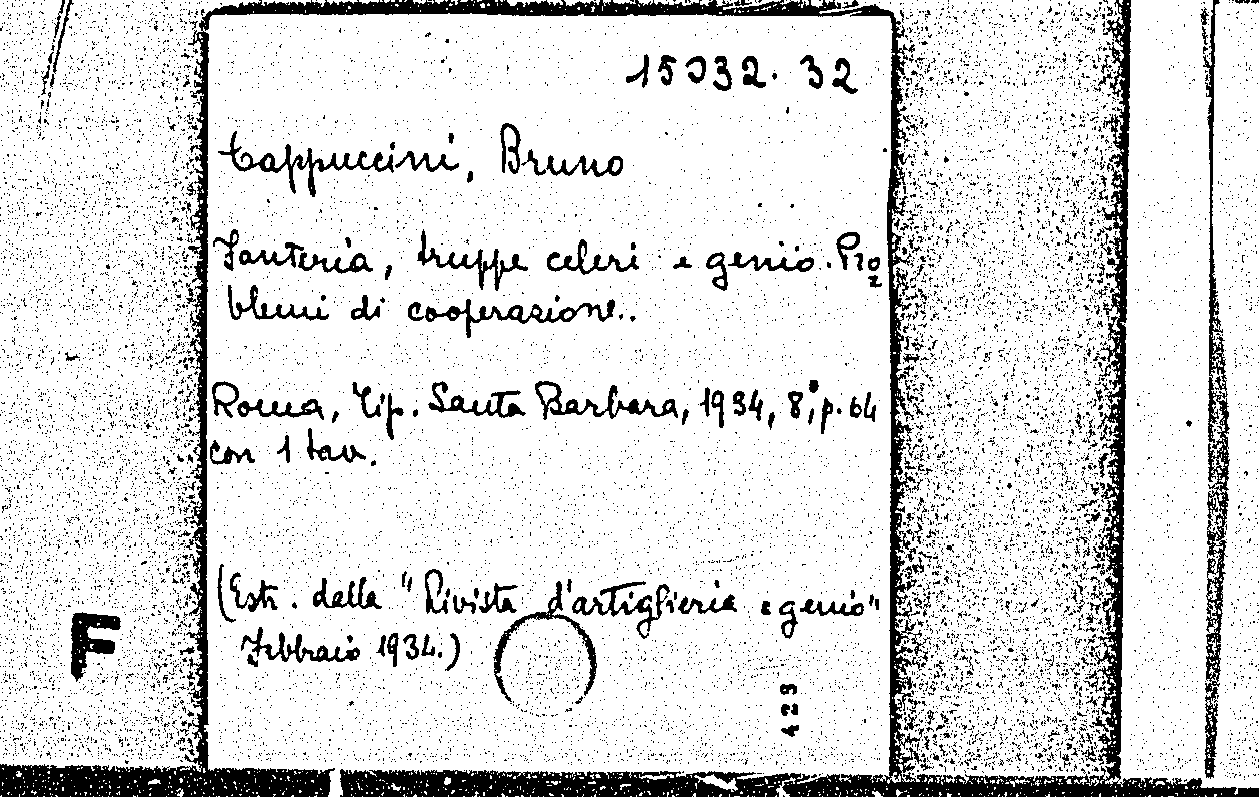 15032. 32
Cappuccini, Bruno
Fanteria, truppe celeri e genio. Pro=
blemi di cooperazione..
Roma, Tip. Santa Barbara, 1934, 8°, p. 64
con 1 tav.
(Estr. dalla "Rivista d'artiglieria e genio"
Febbraio 1934.)
F
429